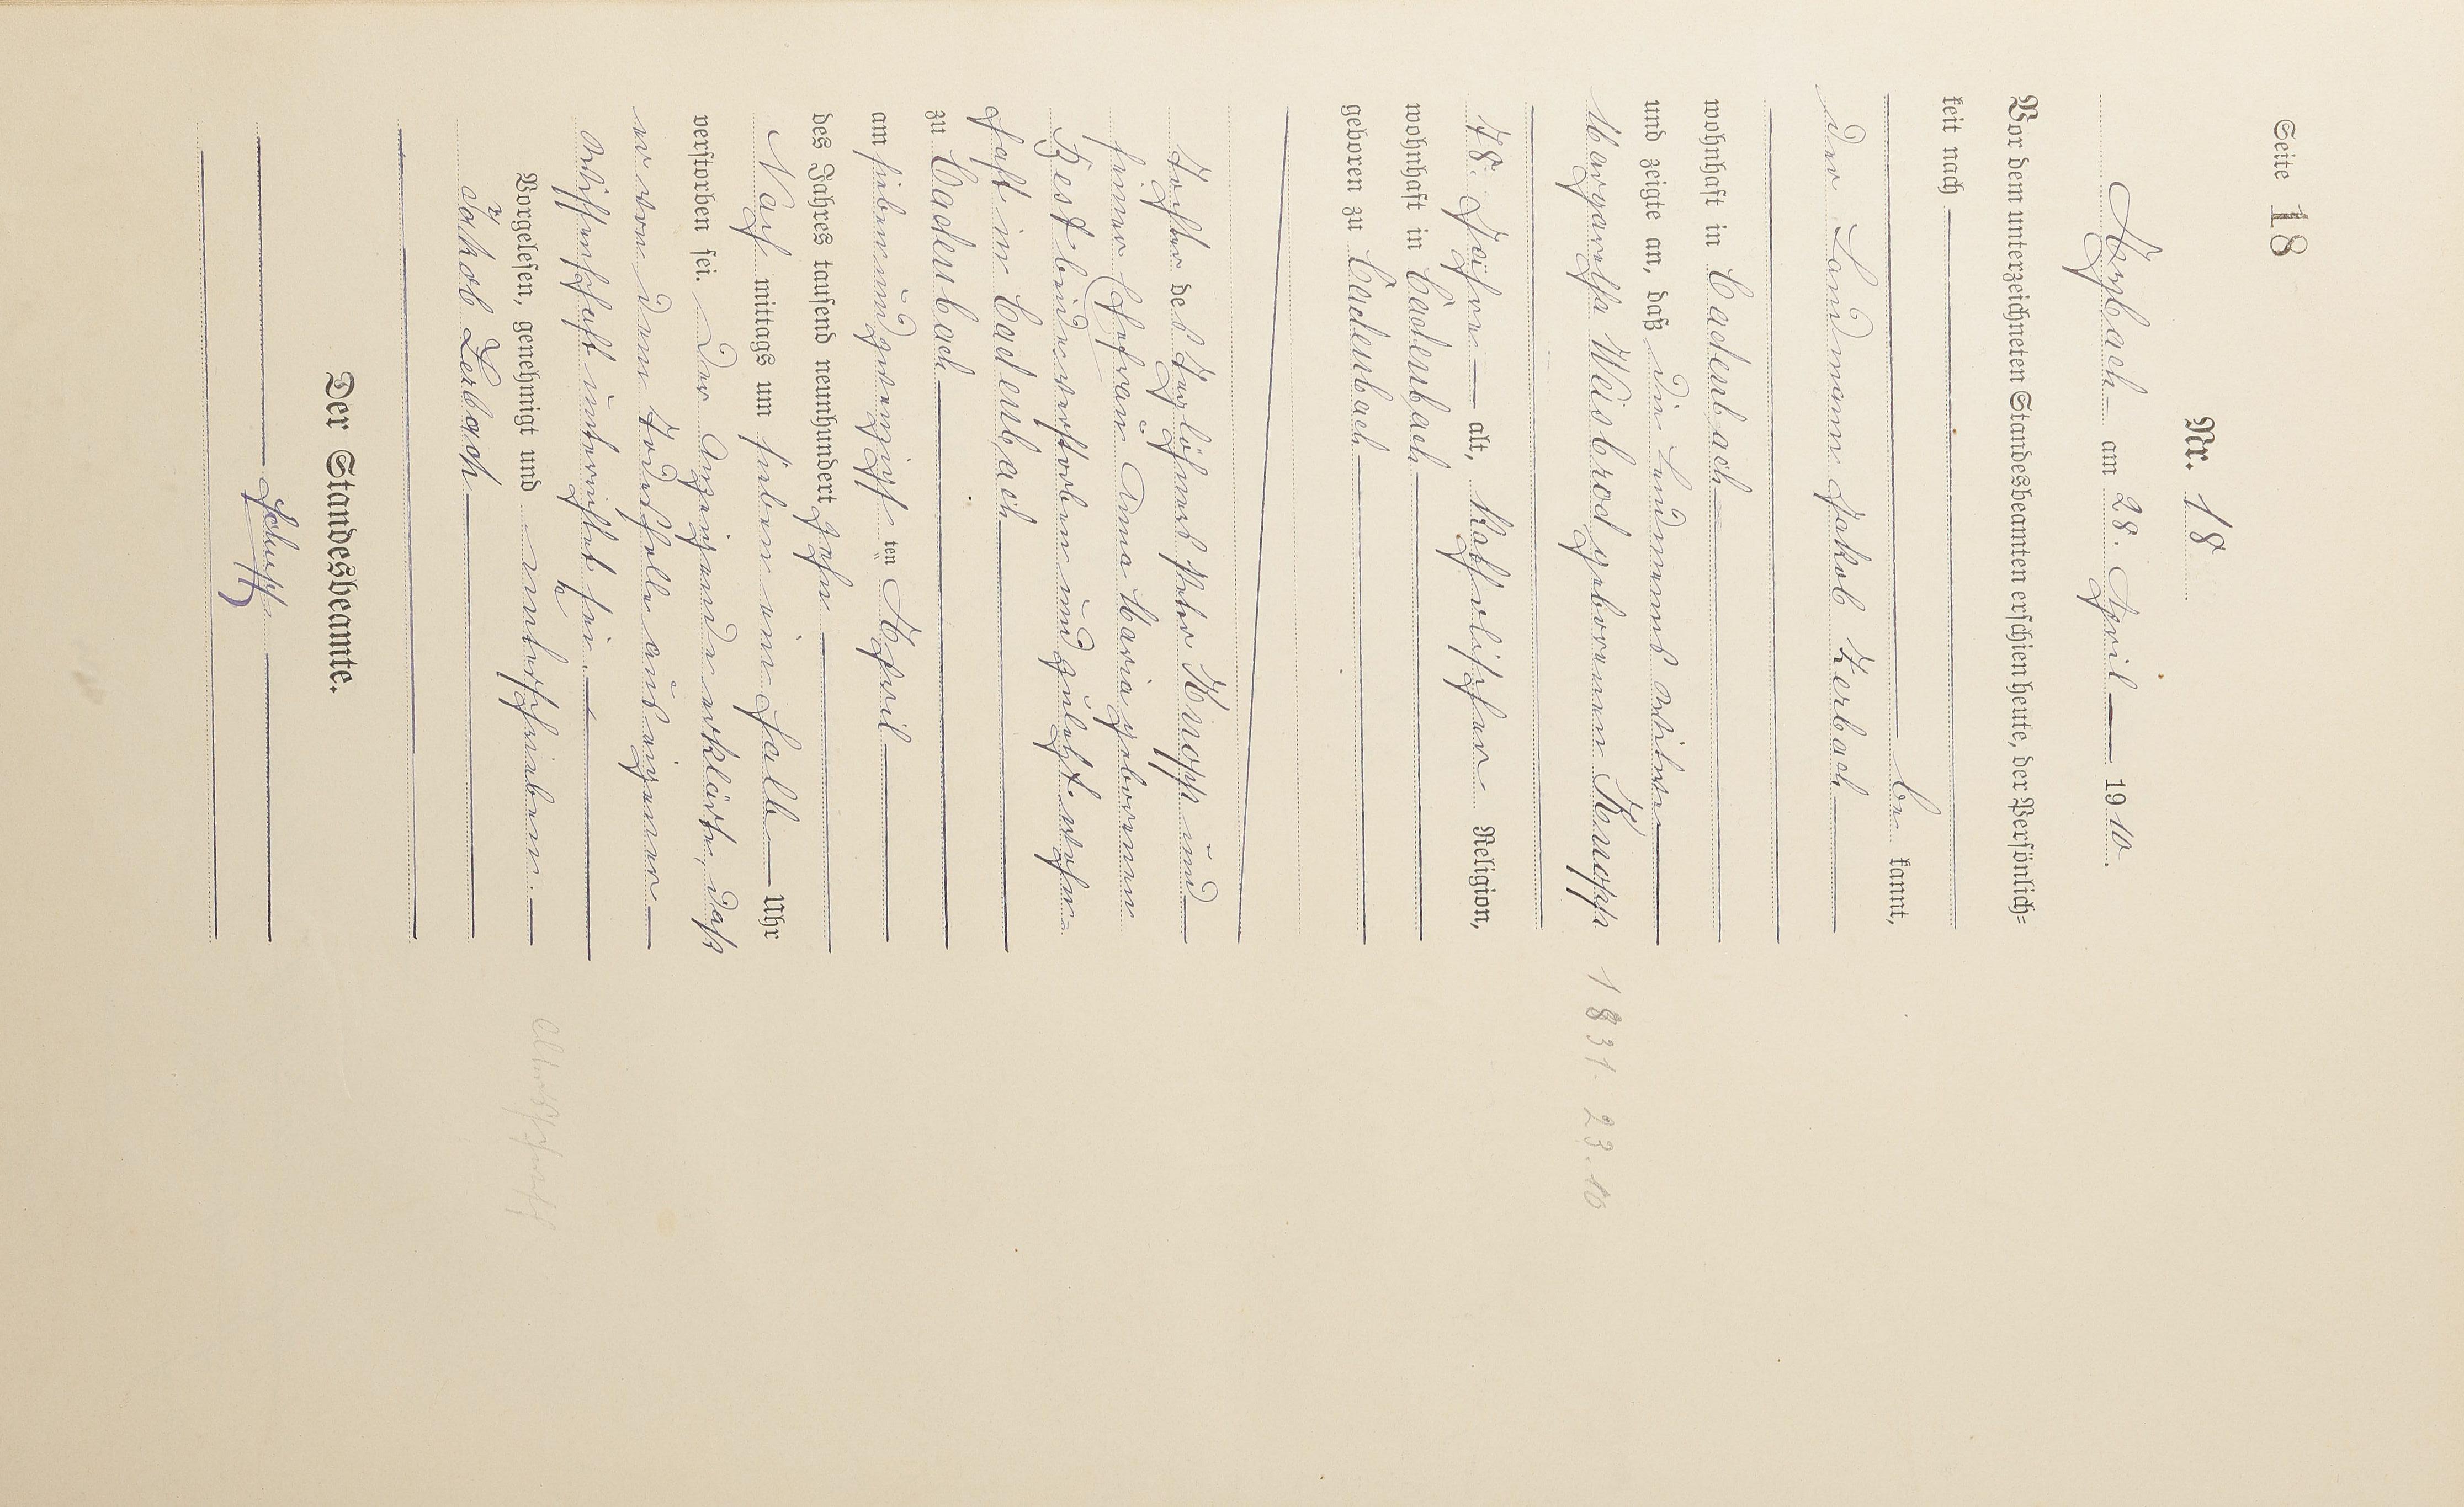 Seite 18
Nr. 18
Arzbach am 28. April 1910.
Vor dem unterzeichneten Standesbeamten erschien heute, der Persönlich=
keit nach
be kannt,
der Landmann Jakob Zerbach
wohnhaft in Cadenbach
und zeigte an, daß die Landmanns Witwe
Margaretha Weisbrod geborenen Knopp 1831. 23.10
78. Jahre alt, Katholischer Religion,
wohnhaft in Cadenbach
geboren zu Cadenbach
Tochter des Tagelöhners Peter Knopp und
seiner Ehefrau Anna Maria geborenen
Best beide verstorben und zuletzt wohn-
haft in Cadenbach
zu Cadenbach
am siebenundzwanzigsten April
des Jahres tausend neunhundert zehn
Nach mittags um sieben ein halb Uhr
verstorben sei. Der Anzeigende erklärte, daß
er von dem Todesfalle aus eigener
Wissenschaft unterrichtet sei.
Vorgelesen, genehmigt und unterschrieben.
Jakob Zerbach
Der Standesbeamte.